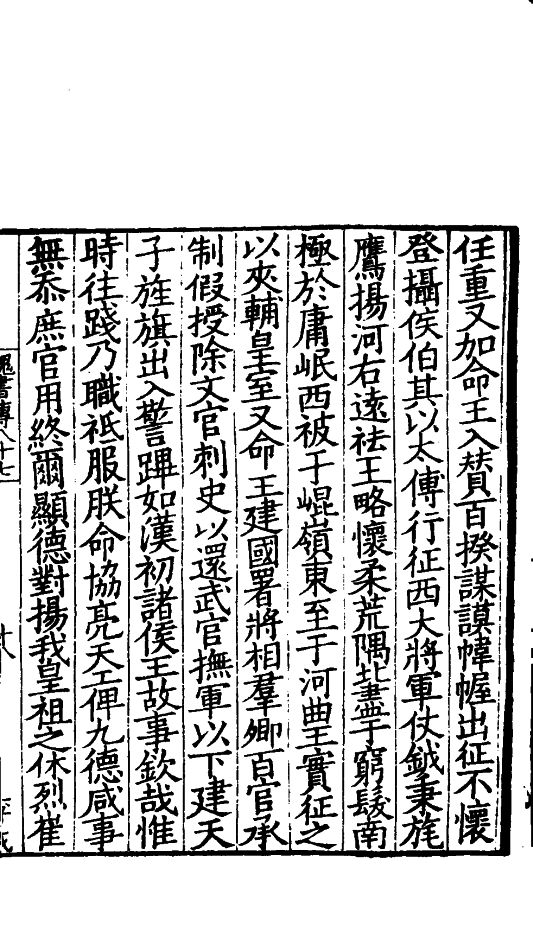 任重又加命王入贊百揆謀謨幃幄出征不懷
登攝侯伯其以太傅行征西大將軍仗鉞秉旄
鷹揚河右遠祛王略懷柔荒隅北盡于窮髮南
極於庸岷西被于崐嶺東至于河曲王實征之
以夾輔皇室又命王建國署將相羣卿百官承
制假授除文官刺史以還武官撫軍以下建天
子旌旗出入警蹕如漢初諸侯王故事欽哉惟
時往踐乃職祗服朕命協亮天工俾九德咸事
無忝庶官用終爾顯德對揚我皇祖之休烈崔
魏書傳八十七